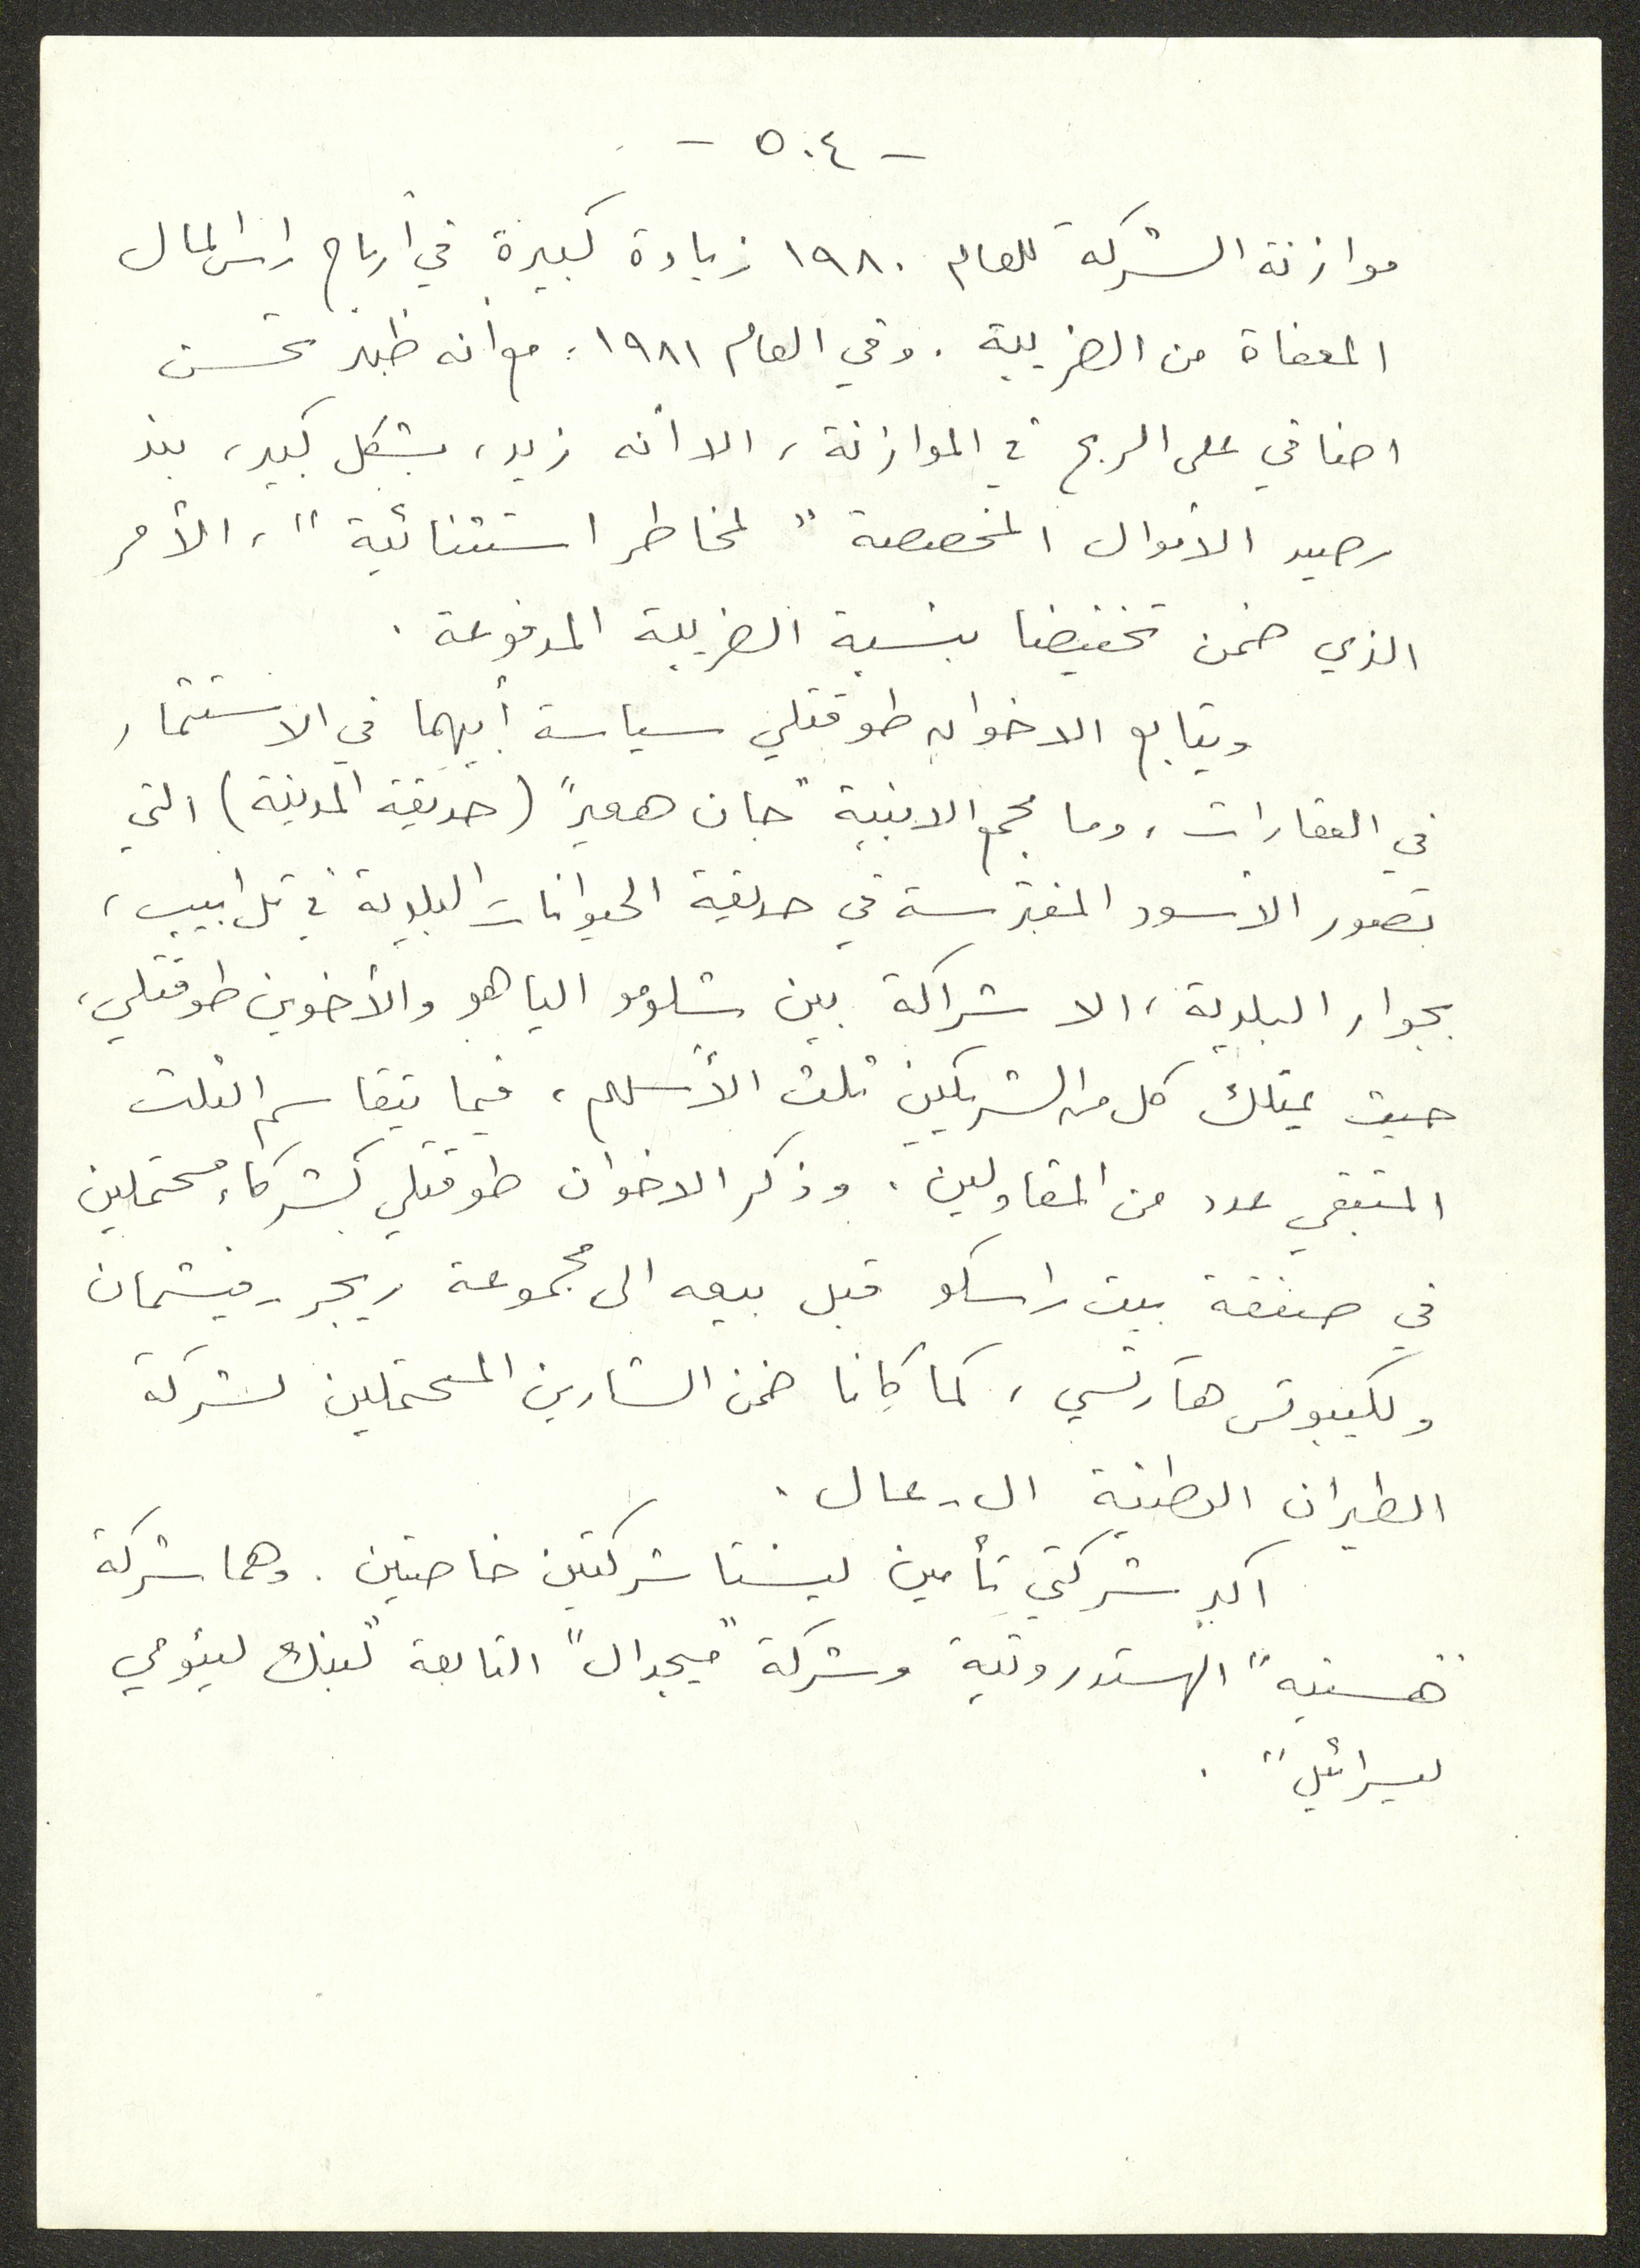 - ٥٠٤ -
موازنة الشركة للعام ١٩٨٠ زيادة كبيرة في أرباح رأس المال
المعفاة من الضريبة. وفي العام ١٩٨١، مع أنه ظهر تحسن
اضافي على الربح في الموازنة، الا أنه زيد، بشكل كبير، بند
رصيد الأموال المخصصة "لمخاطر استثنائية"، الأمر
الذي ضمن تخفيضا بنسبة الضريبة المدفوعة.
ويتابع الاخوان طوقتلي سياسة أبيهما في الاستثمار
في العقارات، وما مجمع الابنية "جان هعير" (حديقة المدينة) التي
تصور الأسود المفترسة في حديقة الحيوانات البلدية في تل أبيب،
بجوار البلدية، الا شراكة بين شلومو الياهو والأخوين طوقتلي،
حيث يمتلك كل من الشريكين ثلث الأسهم، فيما يتقاسم الثلث
المتبقي عدد من المقاولين. وذكر الاخوان طوقتلي كشركاء محتملين
في صفقة بيت راسكو قبل بيعه الى مجموعة ريجر - فيشمان
ولكيبوتس هآرتسي، كما كانا ضمن الشارين المحتملين لشركة
الطيران الوطنية ال - عال.
اكبر شركتي تأمين ليستا شركتين خاصتين. وهما شركة
"هسنيه" الهستدروتية وشركة "ميجدال" التابعة "لبنك ليئومي
ليسرائيل".